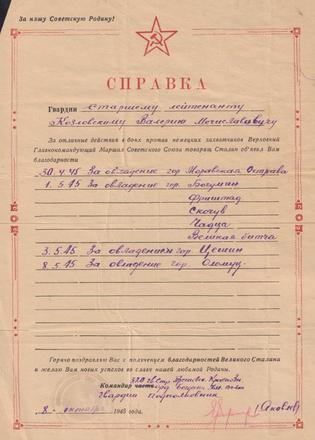 За нашу Советскую Родину!
СПРАВКА
Гвардии старшему лейтенанту
Козловскому Валерию Мечиславовичу
За отличные действия в боях против немецких захватчиков Верховный
Главнокомандующий Маршал Советского Союза товарищ Сталин об'явил Вам
благодарности
30.4.45 За овладение гор. Моравская Острава
1.5.45 За овладение гор. Богумин
Фриштад
Скочув
Чадца
Великая Битча
3.5.45 За овладением гор. Цешин
8.5.45 За овладение гор. Оломуц.
Горячо поздравляю Вас с получением благодарностей Великого Сталина
и желаю Вам новых успехов во славу нашей любимой Родины.
Командир части
Гвардии Подполковник
(Яковлев)
8 октября 1945 года.